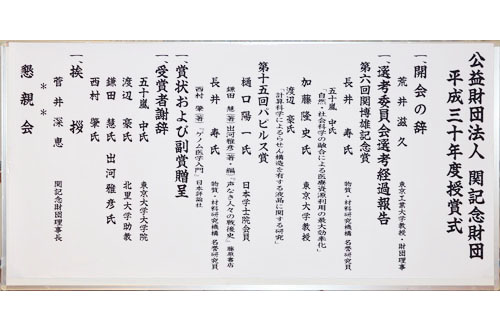 公益財団法人 関記念財団
平成三十年度授賞式
一、開会の辞
荒井滋久 東京工業大学教授・財団理事
一、選考委員会選考経過報告
第六回関博雄記念賞
長井 寿氏 物質・材料研究機構 名誉研究員
五十嵐 中氏
「自然・社会科学の融合による医療資源利用の最大効率化」
加藤隆史氏 東京大学教授
渡辺 豪氏
「計算科学によるらせん構造を有する液晶に関する研究」
第十五回パピルス賞
樋口陽一氏 日本学士院会員
鎌田 慧(著)出河雅彦(著・編)『声なき人々の戦後史』藤原書店
長井 寿氏 物質・材料研究機構 名誉研究員
西村 肇(著)『ゲノム医学入門』日本評論社
一、賞状および副賞贈呈
一、受賞者謝辞
五十嵐 中氏 東京大学大学院
渡辺 豪氏 北里大学助教
鎌田 慧氏 出河雅彦氏
西村 肇氏
一、挨拶
菅井深恵 関記念財団理事長
＊ ＊
懇親会